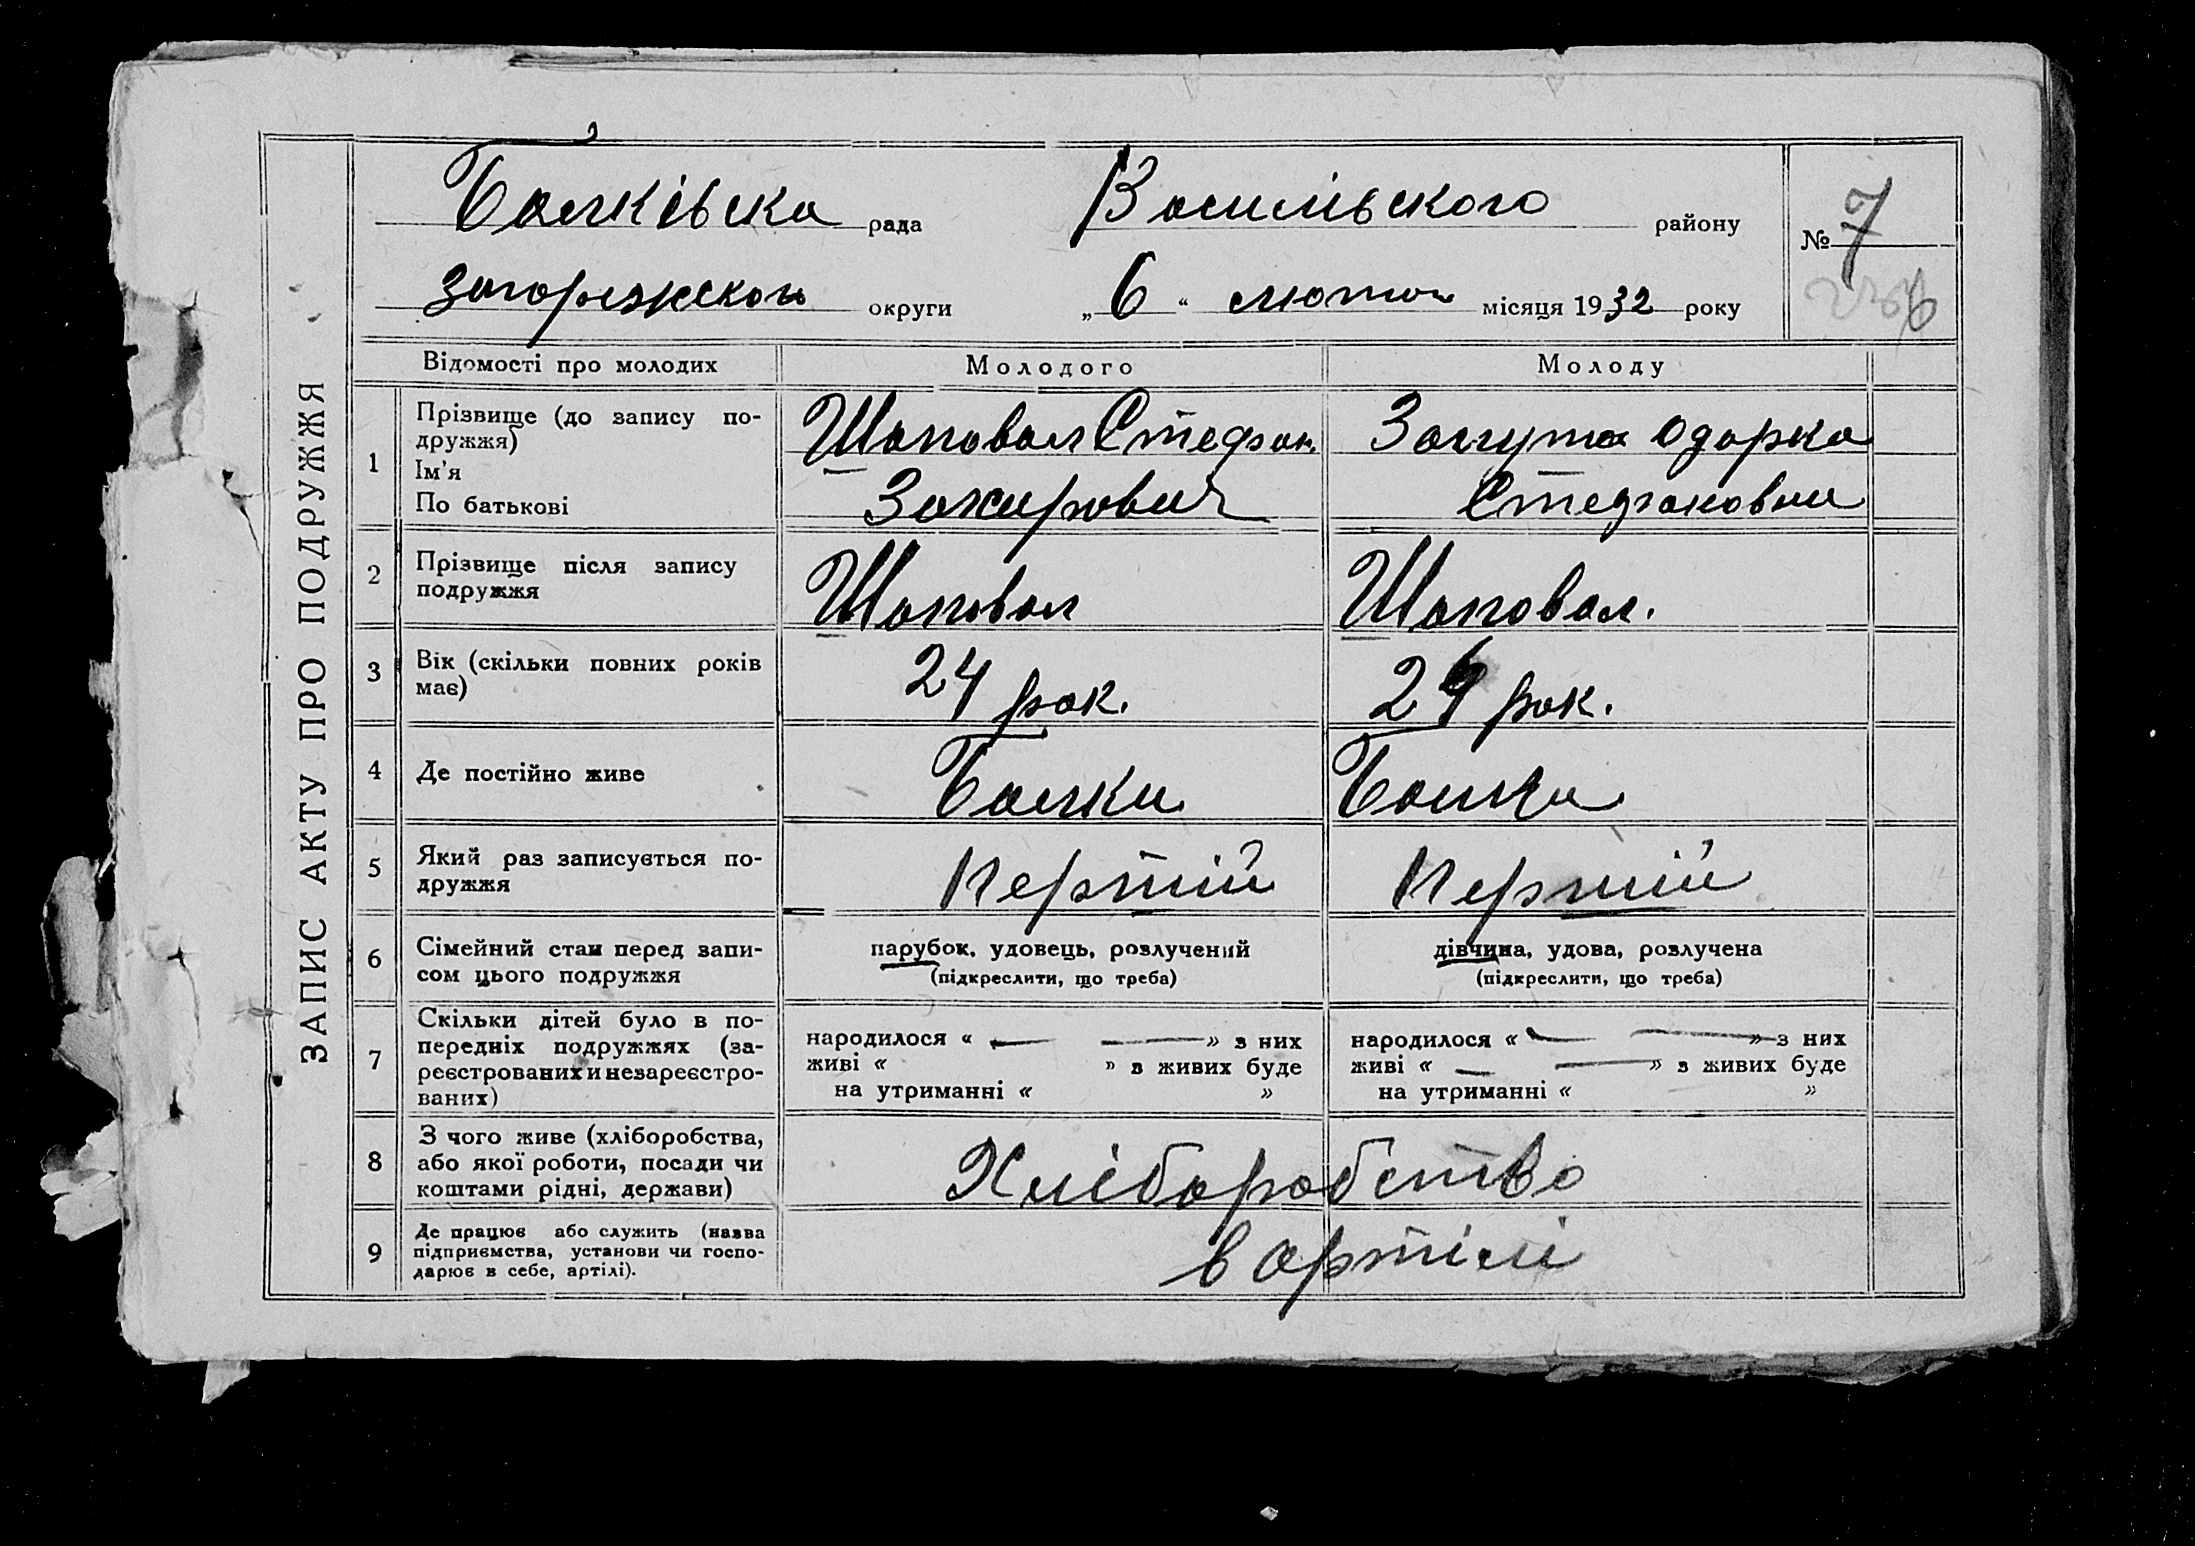 ЗАПИС АКТУ ПРО ПОДРУЖЖЯ
Балківська рада Василівського району
№ 7
Запоріжського округи „6“ лютого місяця 1932 року
Відомості про молодих Молодого Молоду
1 Прізвище (до запису по-
дружжя)
Ім'я
По батькові
Шаповал Стефан.
Захирович
Загута Одарка
Стефановна
2 Прізвище після запису
подружжя
Шаповал
Шаповал.
3 Вік (скільки повних років
має)
24 рок.
24 рок.
4 Де постійно живе
Балки
Балки
5 Який раз записується по-
дружжя
Першій
Першій
6 Сімейний стан перед запи-
сом цього подружжя
парубок, удовець, розлучений
(підкреслити, що треба)
дівчина, удова, розлучена
(підкреслити, що треба)
7 Скільки дітей було в по-
передніх подружжях (за-
реєстрованих и незареєстро-
ваних)
народилося « — — » з них
живі « » з живих буде
на утриманні « »
народилося « — — » з них
живі « — — » з живих буде
на утриманні « »
8 З чого живе (хліборобства,
або якої роботи, посади чи
коштами рідні, держави)
Хліборобство
9 Де працює або служить (назва
підприємства, установи чи госпо-
дарює в себе, артілі).
в артілі